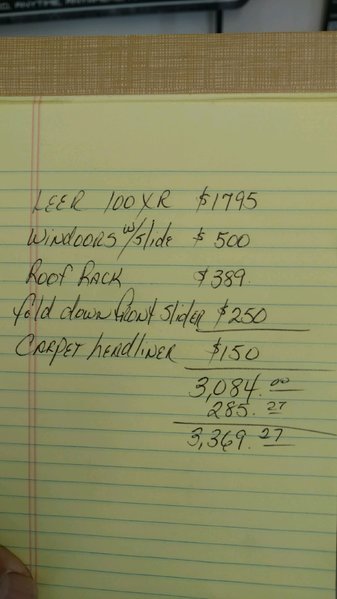 LEER 100XR $1795
Windoors w/slide $500
Roof Rack $389.
fold down front slider $250
Carpet headliner $150
3,084.00
285.27
3,369.27